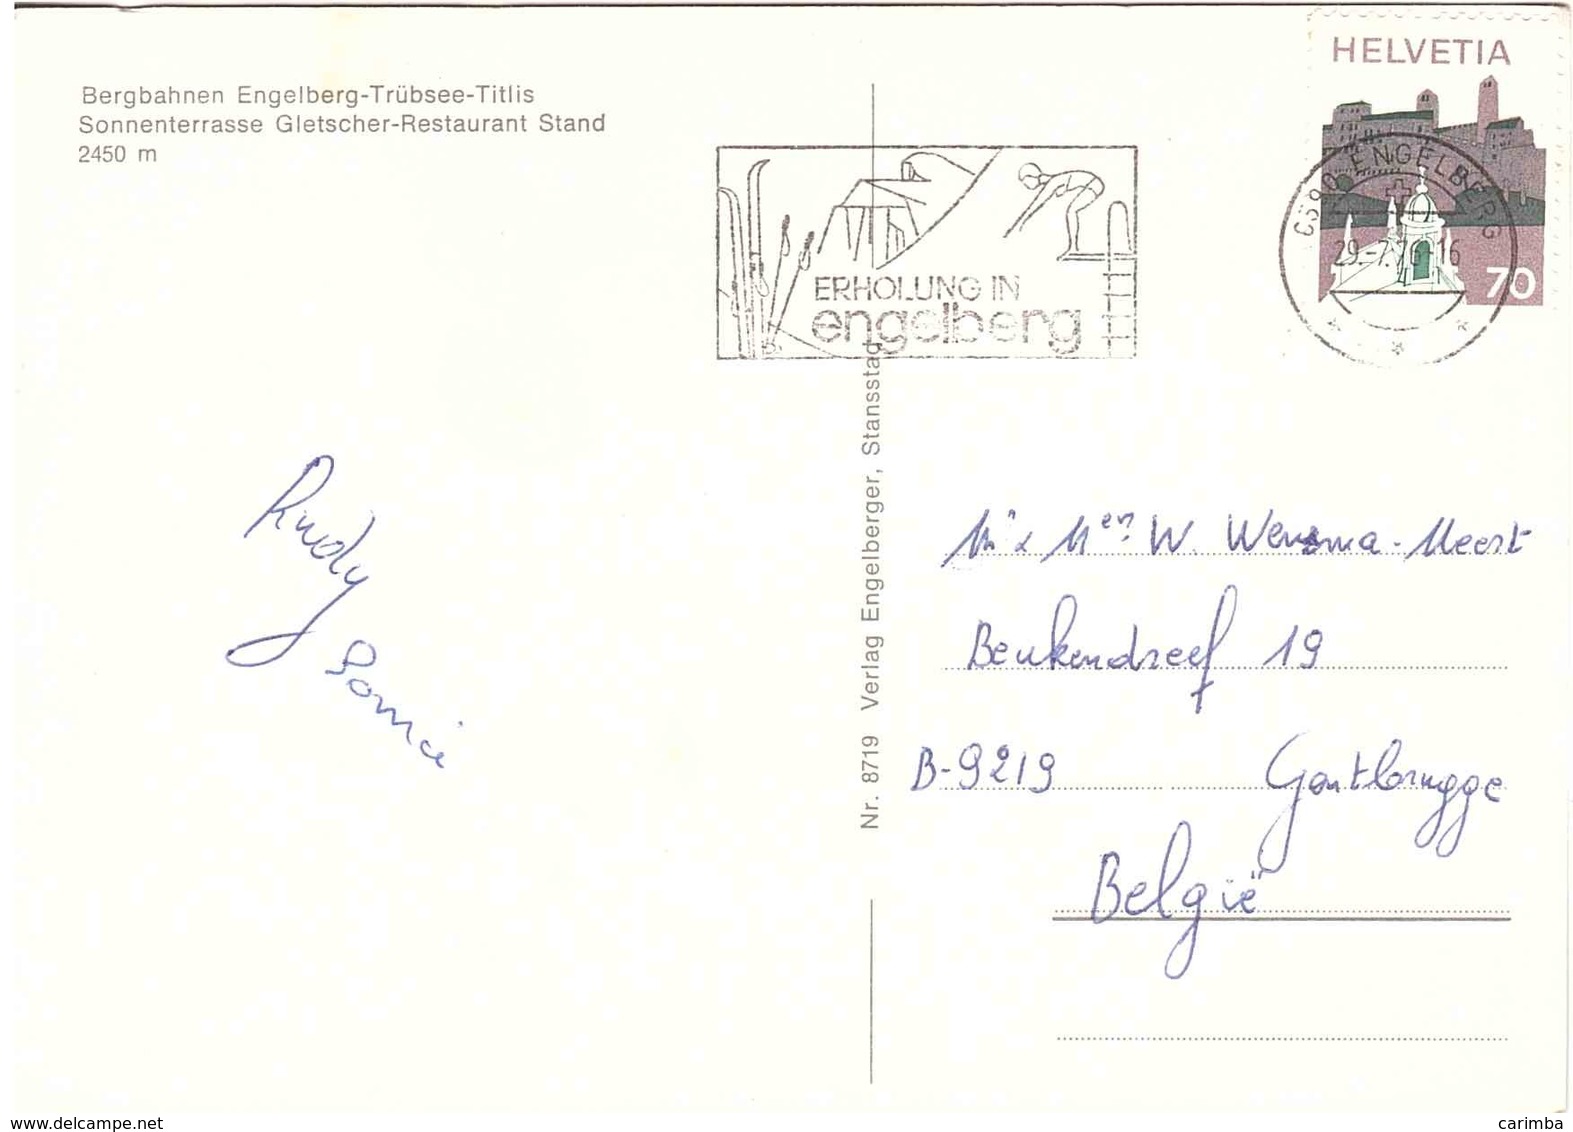 Bergbahnen Engelberg-Trübsee-Titlis
Sonnenterrasse Gletscher-Restaurant Stand
2450 m
HELVETIA
70
6390 ENGELBERG
29.-7.76-16
ERHOLUNG IN
engelberg
Nr. 8719 Verlag Engelberger, Stansstad
Rudy
Sonnie
Mr & Men W. Wensma-Meert
Beukendreef 19
B-9219 Gentbrugge
België
www.delcampe.net
carimba